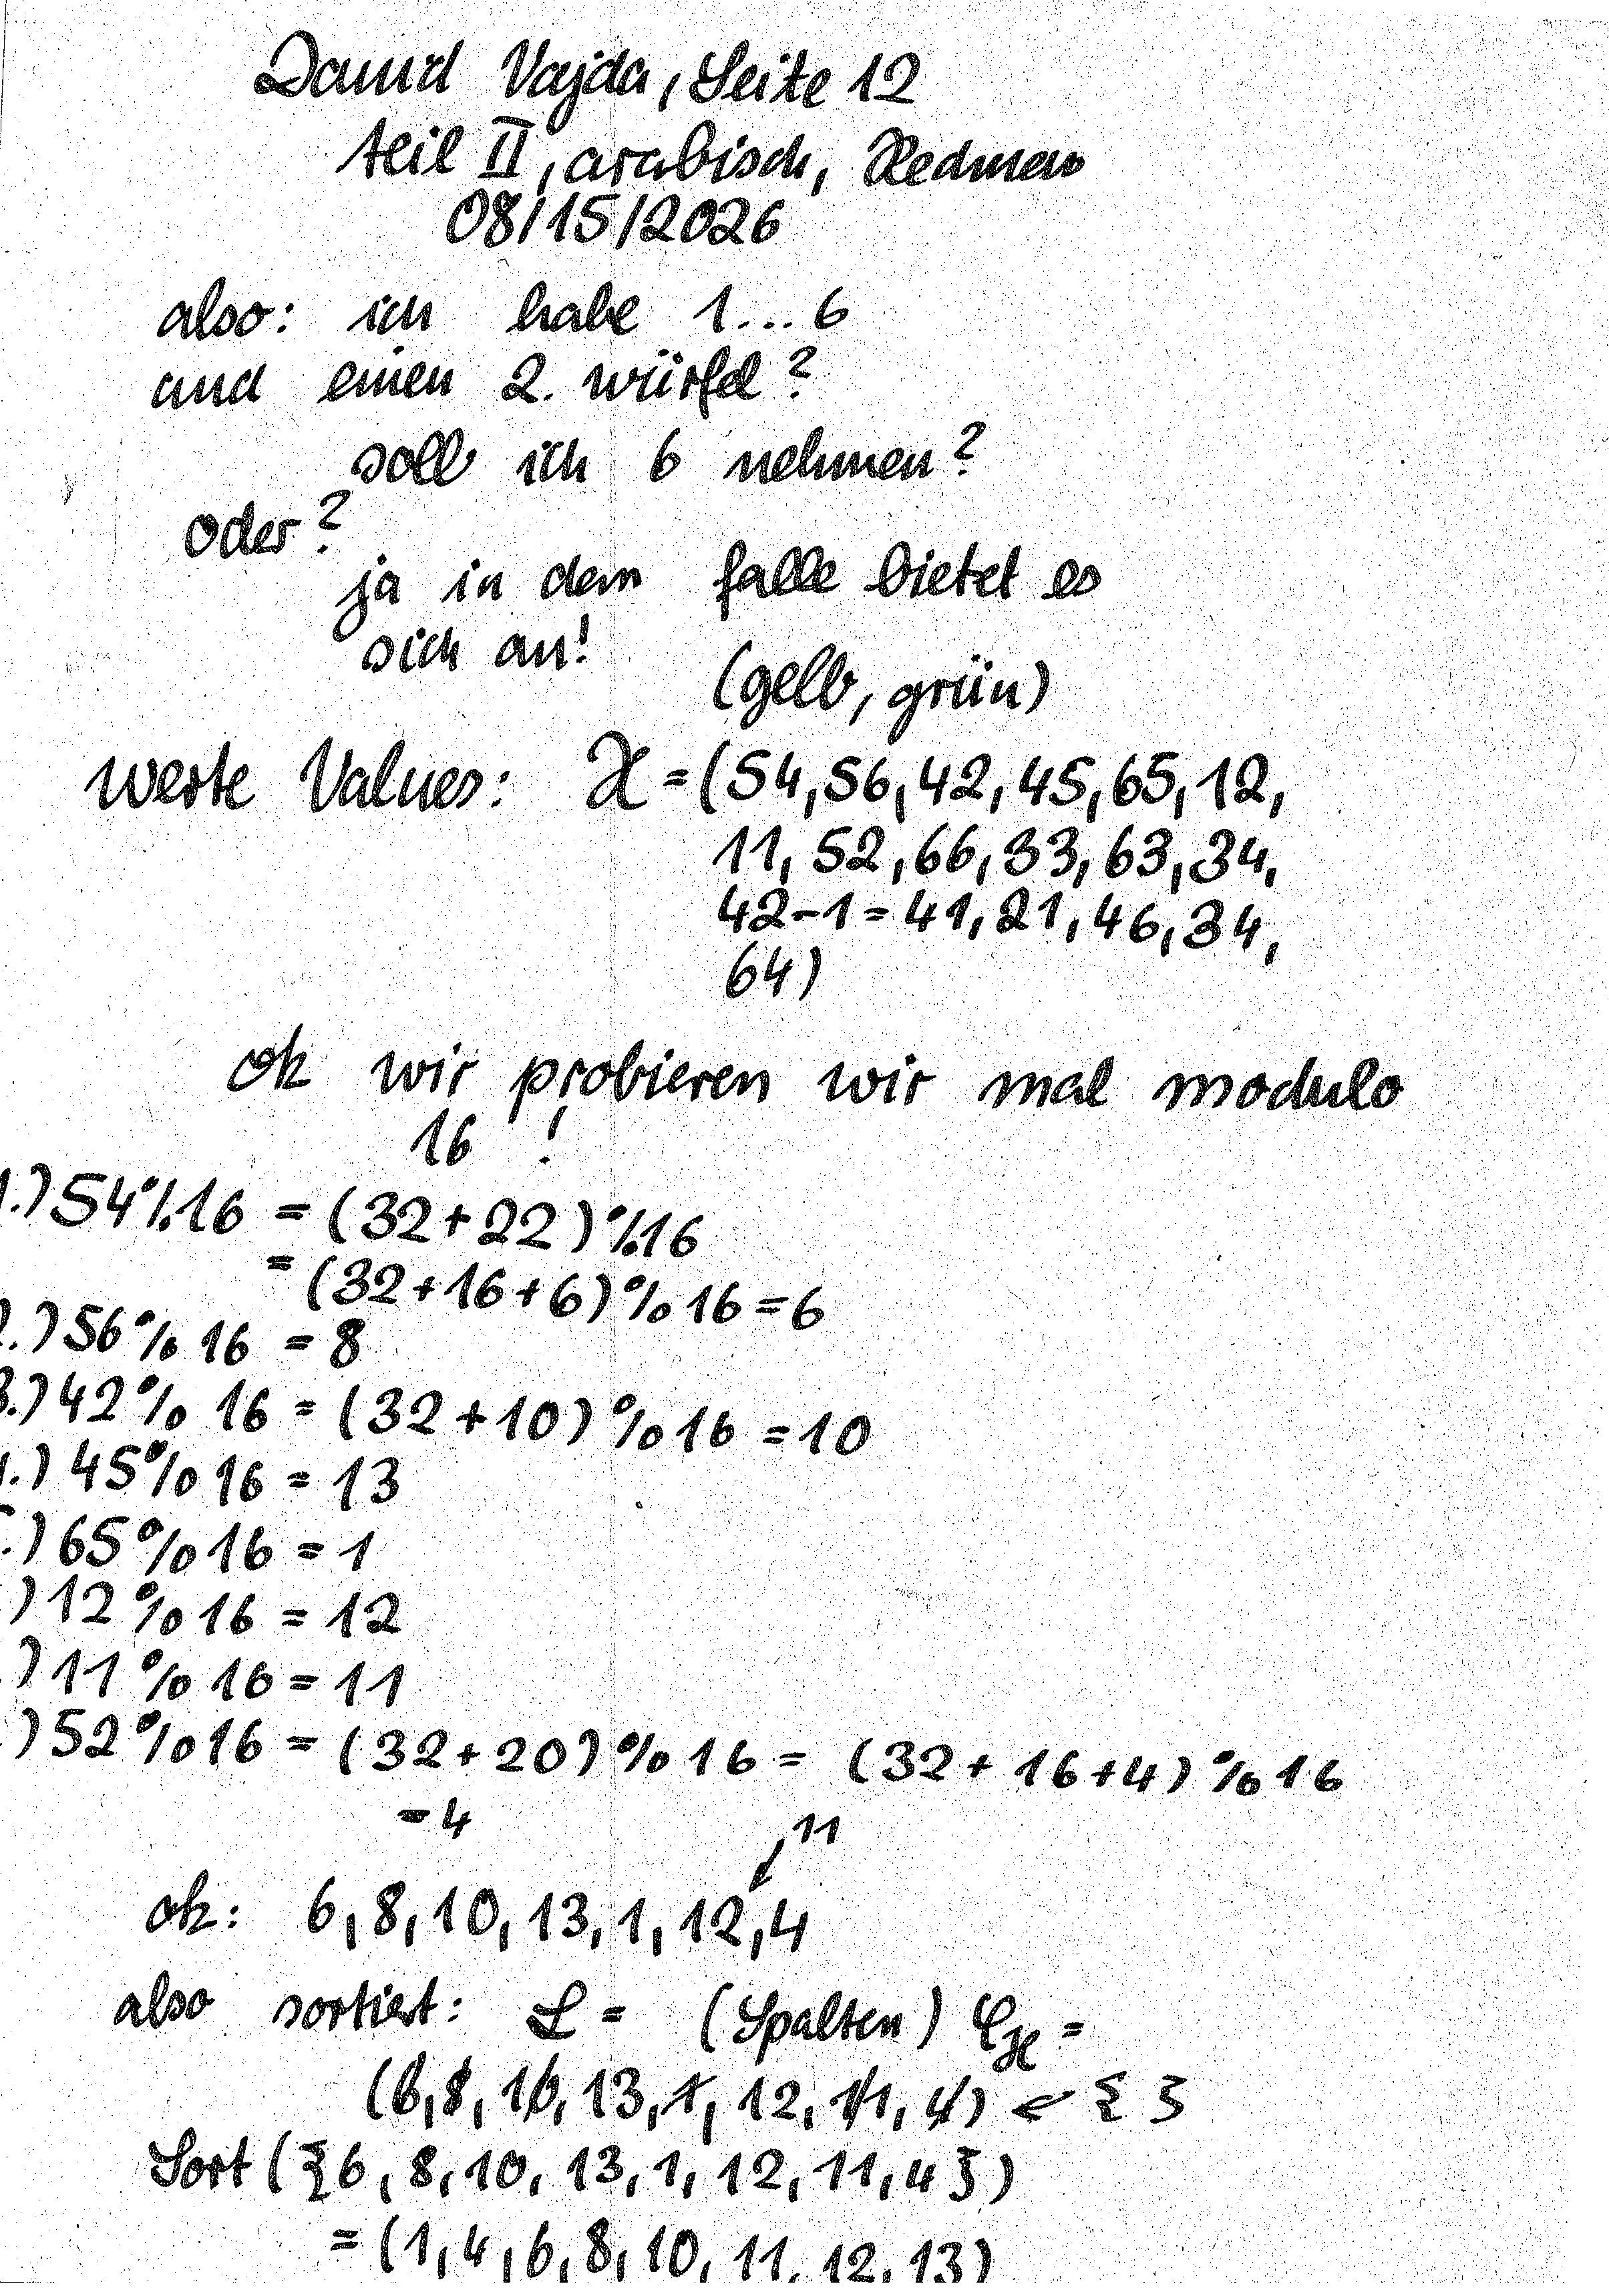 David Vajda, Seite 12
teil II, arabisch, Rechnen
08/15/2026
also: ich habe 1...6
und einen 2. würfel?
soll ich 6 nehmen?
oder?
ja in dem falle bietet es
sich an!
(gelb, grün)
werte Values: X = (54, 56, 42, 45, 65, 12,
11, 52, 66, 33, 63, 34,
42-1=41, 21, 46, 34,
64)
ok wir probieren wir mal modulo
16 !
1.) 54%16 = (32+22)%16
= (32+16+6)%16=6
2.) 56%16 = 8
3.) 42%16 = (32+10)%16 =10
4.) 45%16 = 13
.) 65%16 = 1
) 12%16 = 12
.) 11%16 = 11
.) 52%16 = (32+20)%16 = (32+16+4)%16
=4
11
ok: 6, 8, 10, 13, 1, 12, 4
also sortiert: L = (Spalten) C_X =
(6, 8, 10, 13, 1, 12, 11, 4) ← { }
Sort({6, 8, 10, 13, 1, 12, 11, 4})
= (1, 4, 6, 8, 10, 11, 12, 13)